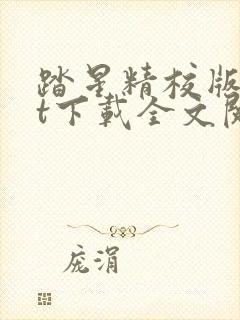 踏星精校版
t下载全文阅
庞涓